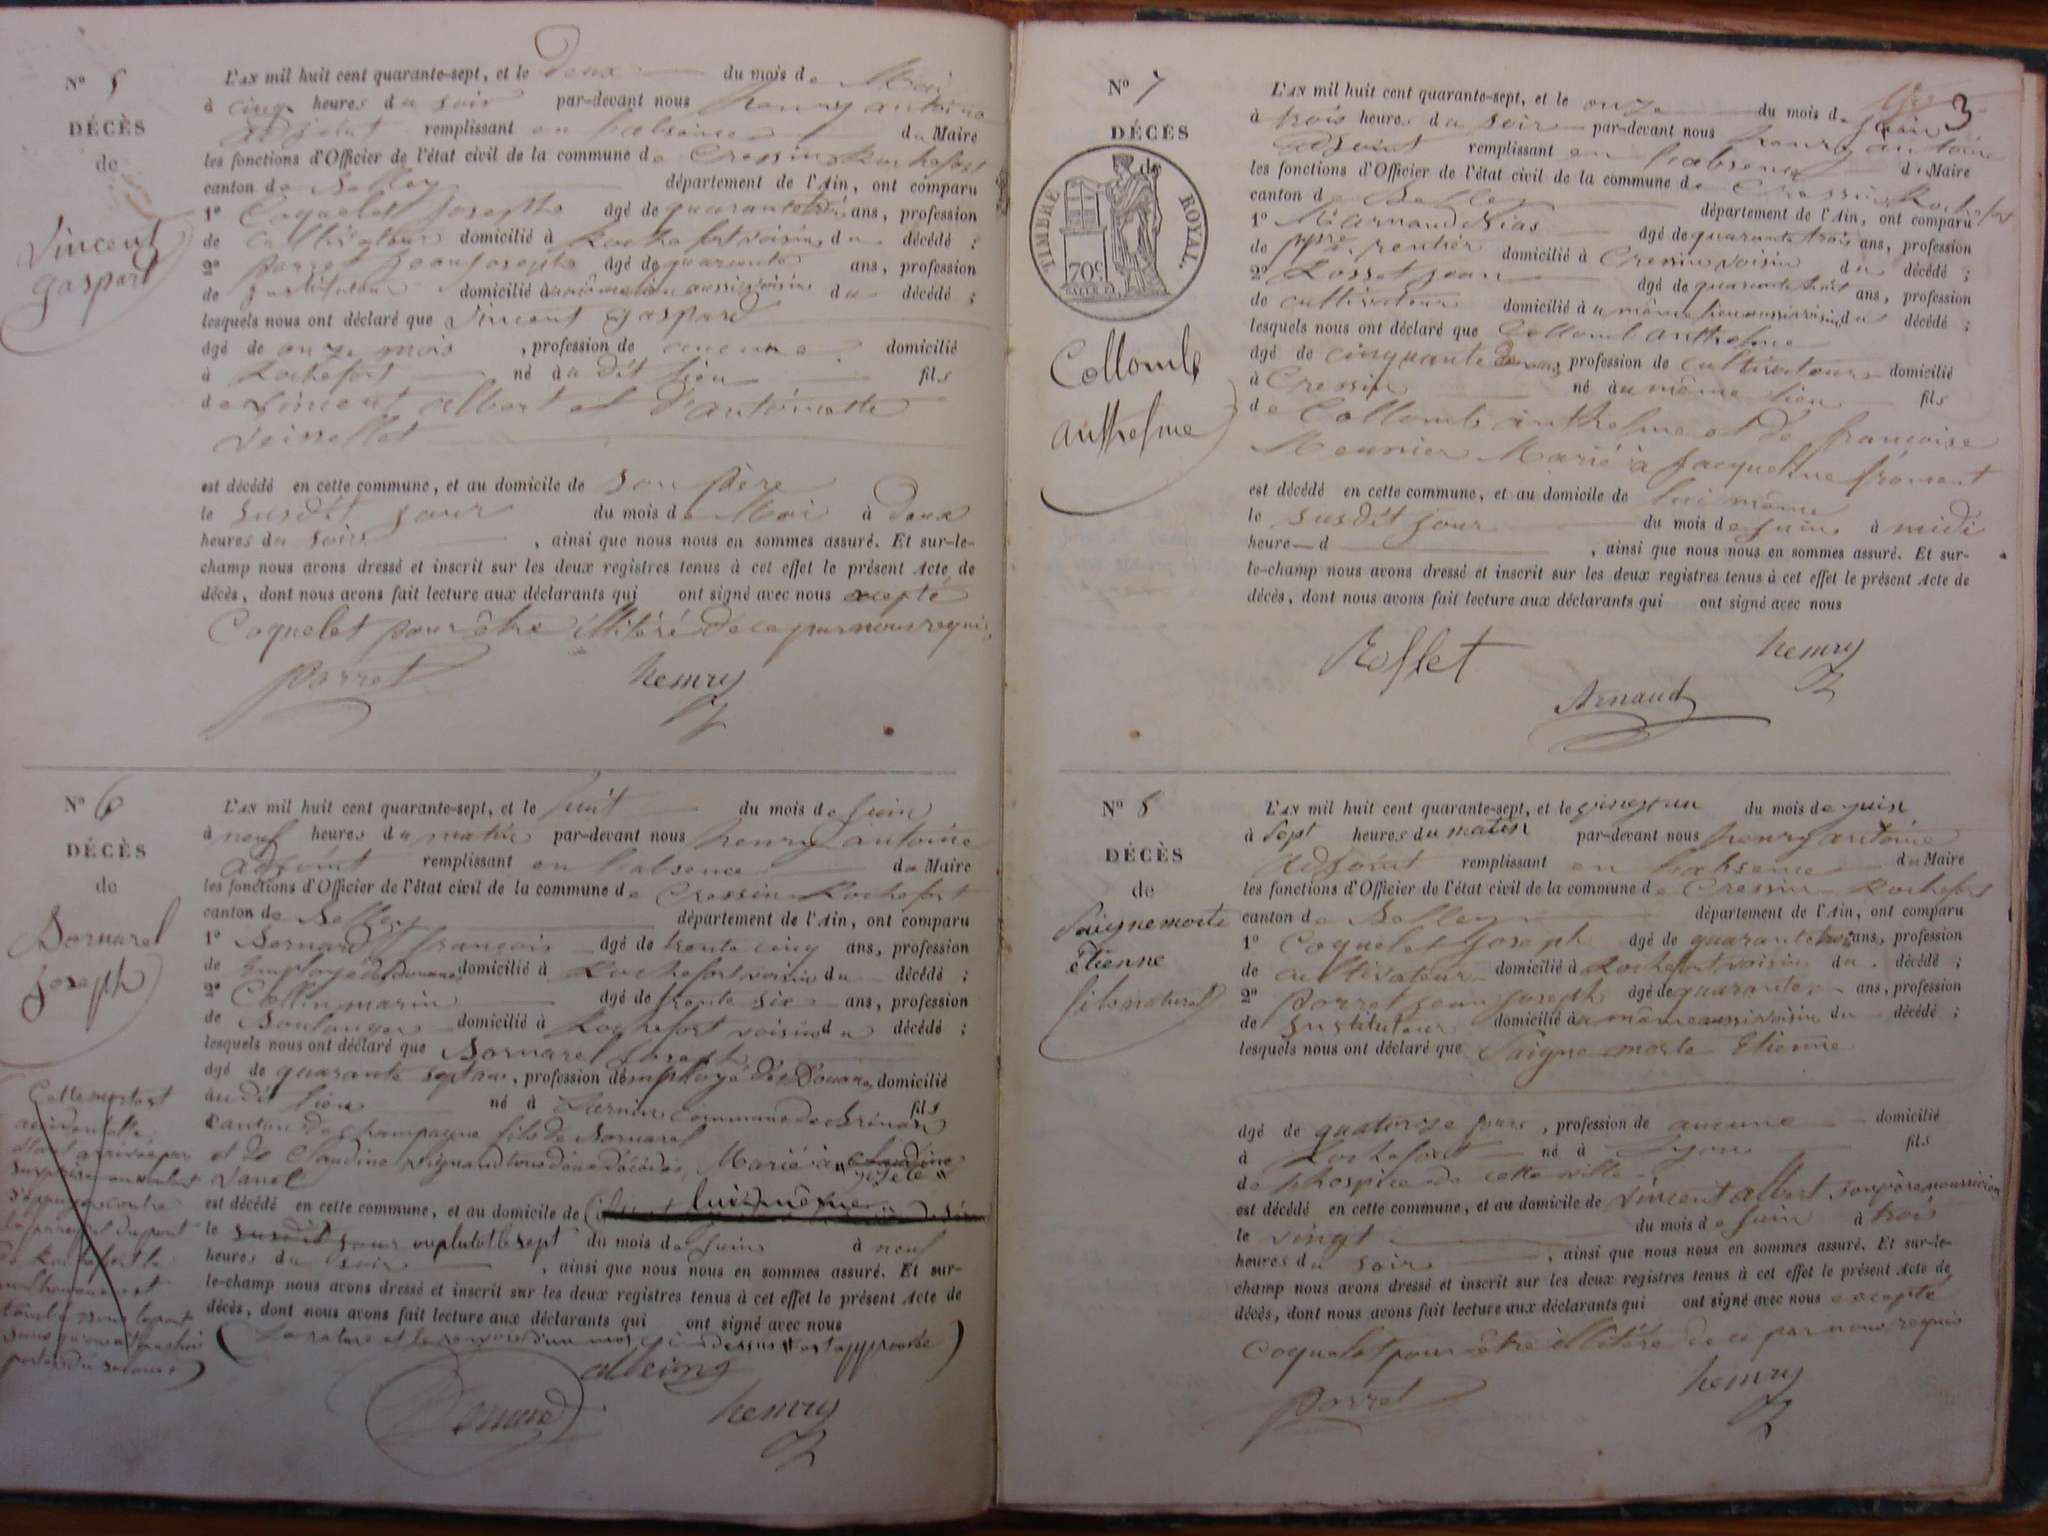 N° 5
DÉCÈS
de
Vincent
gaspard
L'AN mil huit cent quarante-sept, et le deux du mois de Mai
à cinq heures du soir par-devant nous henry antoine
adjoint remplissant en l'absence du Maire
les fonctions d'Officier de l'état civil de la commune de Cressin Rochefort
canton de Belley département de l'Ain, ont comparu
1° Coquelet Joseph âgé de quarante trois ans, profession
de cultivateur domicilié à Rochefort voisin du décédé ;
2° Porret jean joseph âgé de quarante ans, profession
de instituteur domicilié à même lieu aussi voisin du décédé ;
lesquels nous ont déclaré que Vincent gaspard
âgé de onze mois , profession de aucune domicilié
à Rochefort né à u dit lieu fils
de Vincent albert et d'antoinette
est décédé en cette commune, et au domicile de son père
le susdit jour du mois de Mai à deux
heures du soir , ainsi que nous nous en sommes assuré. Et sur-le-
champ nous avons dressé et inscrit sur les deux registres tenus à cet effet le présent Acte de
décès, dont nous avons fait lecture aux déclarants qui ont signé avec nous excepté
Coquelet pour être illitéré de ce par nous requis
Porret henry
N° 6
DÉCÈS
de
Bornarel
joseph
L'AN mil huit cent quarante-sept, et le huit du mois de juin
à neuf heures du matin par-devant nous henry antoine
adjoint remplissant en l'absence du Maire
les fonctions d'Officier de l'état civil de la commune de Cressin Rochefort
canton de Belley département de l'Ain, ont comparu
1° Bernard françois âgé de trente cinq ans, profession
de Employé des douanes domicilié à Rochefort voisin du décédé ;
2° Collin marin âgé de trente six ans, profession
de Boulanger domicilié à Rochefort voisin du décédé ;
lesquels nous ont déclaré que Bornarel Joseph
âgé de quarante sept ans , profession d'employé des Douanes domicilié
au dit lieu né à commune de Brénaz fils
canton de champagne fils de Bornarel
et de Claudine tous deux décédés, Marié à claudine
est décédé en cette commune, et au domicile de lui même
le susdit jour ou plutot le sept du mois de juin à neuf
heures du soir , ainsi que nous nous en sommes assuré. Et sur-
le-champ nous avons dressé et inscrit sur les deux registres tenus à cet effet le présent Acte de
décès, dont nous avons fait lecture aux déclarants qui ont signé avec nous
(La rature et le renvoi d'un mot ci dessus est approuvée)
Cette mort est
accidentelle
étant arrivée par
contre
le parapet du pont
de Rochefort le
malheureux est
tombé sous le pont
porter du secours)
Bernard henry
N° 7
DÉCÈS
de
TIMBRE ROYAL.
70c
Collomb
anthelme
3
L'AN mil huit cent quarante-sept, et le onze du mois de juin
à trois heures du soir par-devant nous henry antoine
adjoint remplissant en l'absence du Maire
les fonctions d'Officier de l'état civil de la commune de Cressin Rochefort
canton de Belley département de l'Ain, ont comparu
1° âgé de quarante trois ans, profession
de ppre. rentier domicilié à Cressin voisin du décédé ;
2° Rosset jean âgé de quarante huit ans, profession
de cultivateur domicilié à u même lieu aussi voisin du décédé ;
lesquels nous ont déclaré que Collomb anthelme
âgé de cinquante deux ans, profession de cultivateur domicilié
à Cressin né à u même lieu fils
de Collomb anthelme et de françoise
Meunier Marié à jacqueline froment
est décédé en cette commune, et au domicile de lui même
le susdit jour du mois de juin à midi
heure d , ainsi que nous nous en sommes assuré. Et sur-
le-champ nous avons dressé et inscrit sur les deux registres tenus à cet effet le présent Acte de
décès, dont nous avons fait lecture aux déclarants qui ont signé avec nous
Rosset henry
Arnaud
N° 8
DÉCÈS
de
Saignemorte
étienne
fils naturel
L'AN mil huit cent quarante-sept, et le vingt un du mois de juin
à sept heures du matin par-devant nous henry antoine
adjoint remplissant en l'absence du Maire
les fonctions d'Officier de l'état civil de la commune de Cressin Rochefort
canton de Belley département de l'Ain, ont comparu
1° Coquelet Joseph âgé de quarante trois ans, profession
de cultivateur domicilié à Rochefort voisin du décédé ;
2° Porret jean joseph âgé de quarante ans, profession
de instituteur domicilié à u même aussi voisin du décédé ;
lesquels nous ont déclaré que Saigne morte Etienne
âgé de quatorze jours , profession de aucune domicilié
à Rochefort né à Lyon fils
de l'hospice de cette ville
est décédé en cette commune, et au domicile de Vincent albert son père nourricier
le vingt du mois de juin à trois
heures du soir , ainsi que nous nous en sommes assuré. Et sur-le-
champ nous avons dressé et inscrit sur les deux registres tenus à cet effet le présent Acte de
décès, dont nous avons fait lecture aux déclarants qui ont signé avec nous excepté
Coquelet pour être illitéré de ce par nous requis
Porret henry